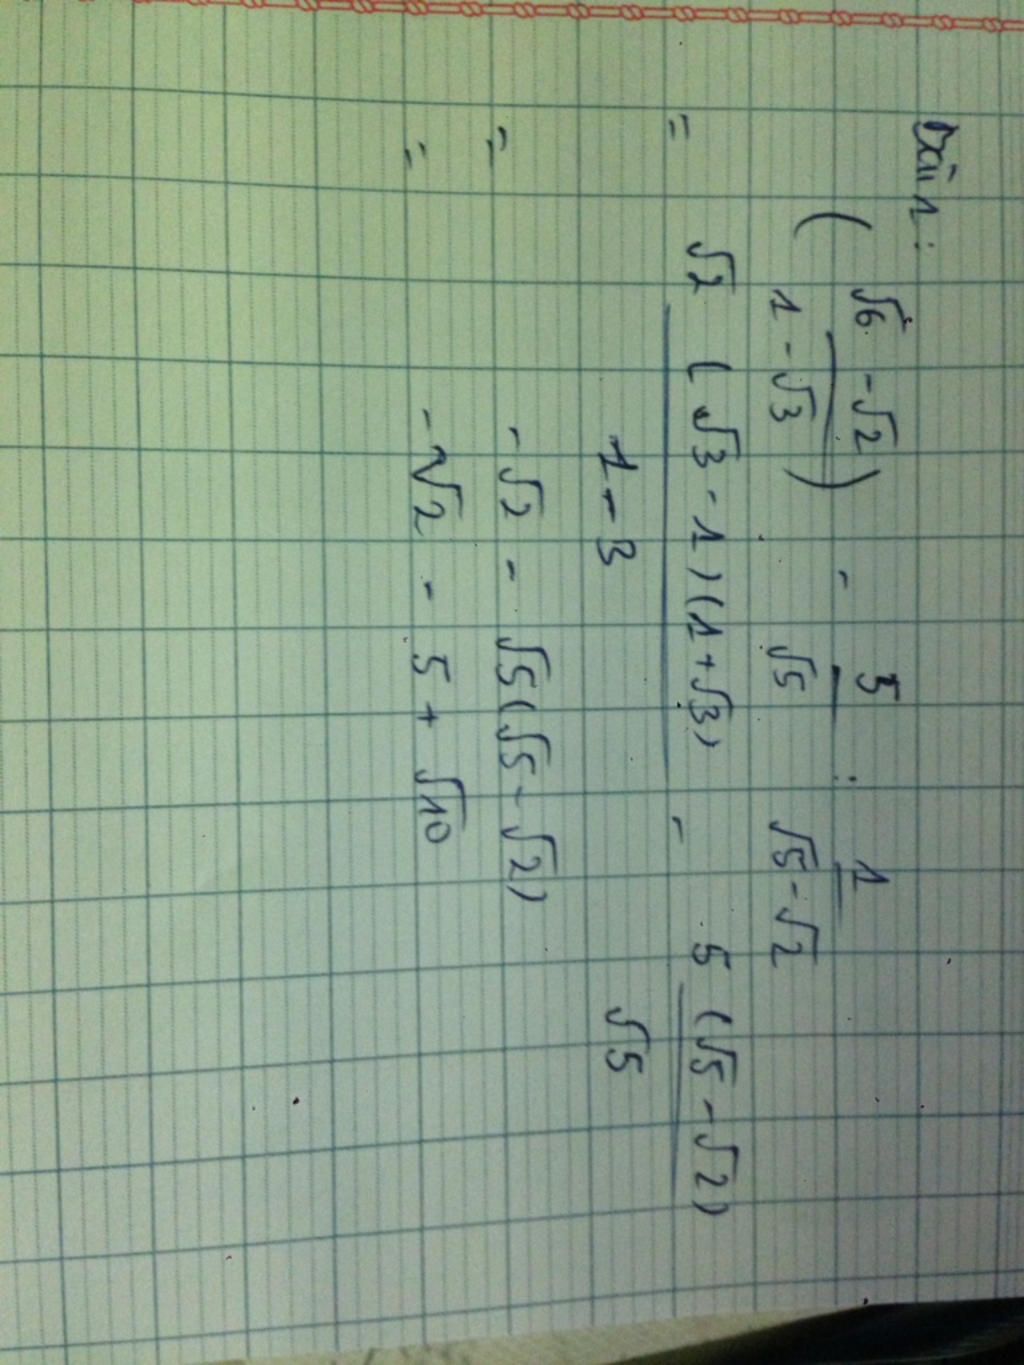 Bài 1:
( (√6 - √2)/(1 - √3) ) - 5/√5 : 1/(√5 - √2)
= √2 (√3 - 1)(1 + √3)/(1 - 3) - 5 (√5 - √2)/√5
= -√2 - √5(√5 - √2)
= -√2 - 5 + √10